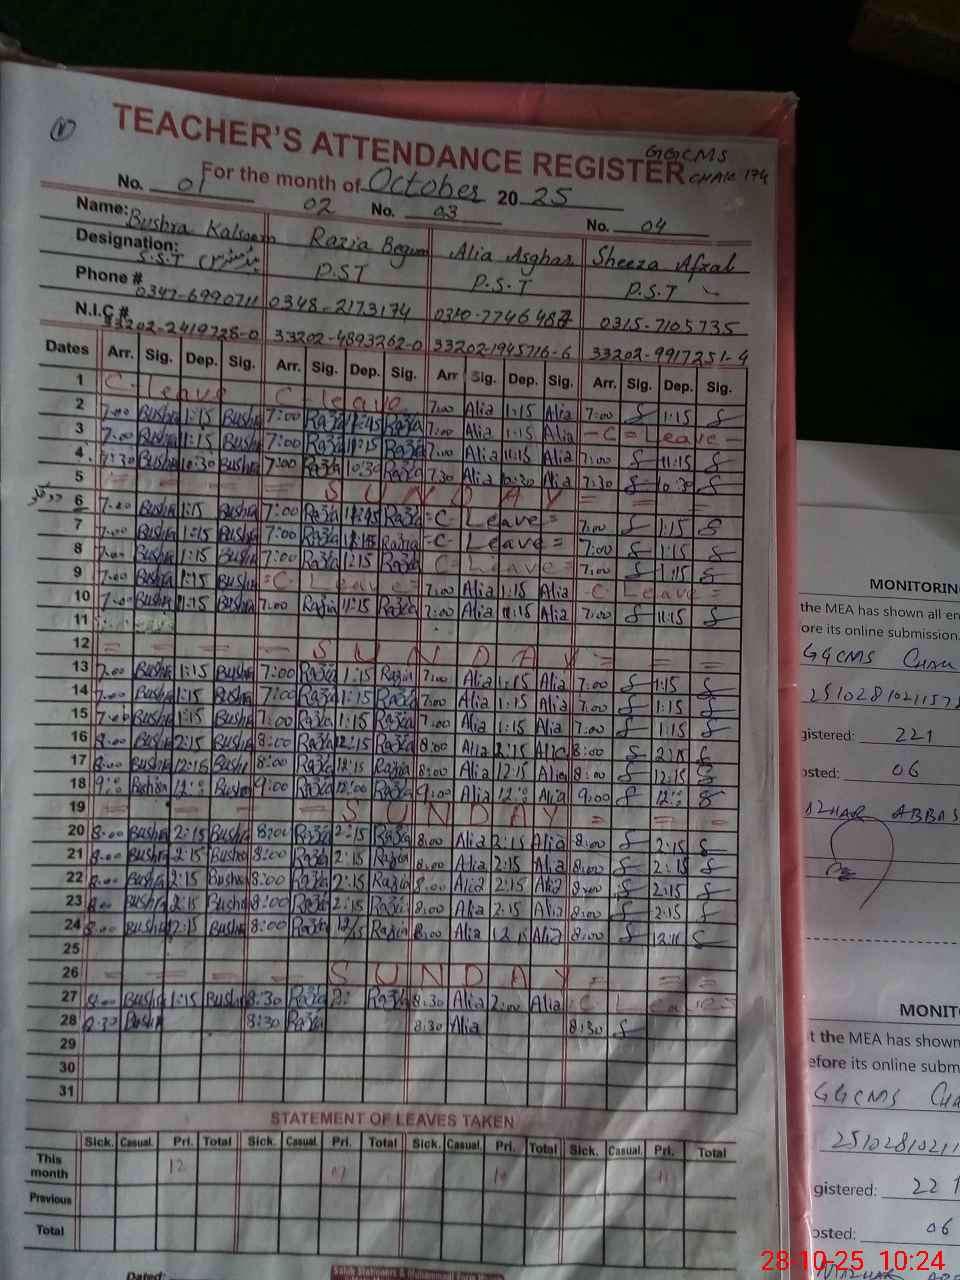 TEACHER'S ATTENDANCE REGISTER
GGCMS
CHAK 174
For the month of October 2025
No. 01 02 No. 03 No. 04
Name: Bushra Kalsoom Razia Begum Alia Asghar Sheeza Afzal
Designation: S.S.T P.ST P.S.T P.S.T
Phone # 0347-6990711 0348-2173174 0310-7746487 0315-7105735
N.I.C # 33202-2419728-0 33202-4893262-0 33202-1945716-6 33202-9917251-4
Dates Arr. Sig. Dep. Sig. Arr. Sig. Dep. Sig. Arr Sig. Dep. Sig. Arr. Sig. Dep. Sig.
1 C-Leave C-Leave 7:00 Alia 1:15 Alia 7:00 1:15
2 7:00 Bushra 1:15 Bushra 7:00 Razia Razia 7:00 Alia 1:15 Alia -C=Leave-
3 7:00 Bushra 1:15 Bushra 7:00 Razia Razia 7:00 Alia 11:15 Alia 7:00 11:15
4 7:30 Bushra 10:30 Bushra 7:00 Razia 10:30 Razia 7:30 Alia 10:30 Alia 7:30 10:30
5 = = = = S U N D A Y = = =
6 7:00 Bushra 1:15 Bushra 7:00 Razia Razia =C- Leave= 7:00 1:15
7 7:00 Bushra 1:15 Bushra 7:00 Razia Razia -C- Leave= 7:00 1:15
8 7:00 Bushra 1:15 Bushra 7:00 Razia 1:15 Razia C=Leave= 7:00 1:15
9 7:00 Bushra 1:15 Bushra =C- Leave= 7:00 Alia 1:15 Alia -C Leave=
10 7:00 Bushra 11:15 Bushra 7:00 Razia 11:15 Razia 7:00 Alia 11:15 Alia 7:00 11:15
11
12 = = = = S U N D A Y = = =
13 7:00 Bushra 1:15 Bushra 7:00 Razia 1:15 Razia 7:00 Alia 1:15 Alia 7:00 1:15
14 7:00 Bushra 1:15 Bushra 7:00 Razia 1:15 Razia 7:00 Alia 1:15 Alia 7:00 1:15
15 7:00 Bushra 1:15 Bushra 7:00 Razia 1:15 Razia 7:00 Alia 1:15 Alia 7:00 1:15
16 8:00 Bushra 2:15 Bushra 8:00 Razia Razia 8:00 Alia 2:15 Alia 8:00 2:15
17 8:00 Bushra 12:15 Bushra 8:00 Razia 12:15 Razia 8:00 Alia 12:15 Alia 8:00 12:15
18 9:00 Bushra 12:00 Bushra 9:00 Razia 12:00 Razia 9:00 Alia 12:00 Alia 9:00 12:00
19 = = = = S U N D A Y = = =
20 8:00 Bushra 2:15 Bushra 8:00 Razia 2:15 Razia 8:00 Alia 2:15 Alia 8:00 2:15
21 8:00 Bushra 2:15 Bushra 8:00 Razia 2:15 Razia 8:00 Alia 2:15 Alia 8:00 2:15
22 8:00 Bushra 2:15 Bushra 8:00 Razia 2:15 Razia 8:00 Alia 2:15 Alia 8:00 2:15
23 8:00 Bushra 2:15 Bushra 8:00 Razia 2:15 Razia 8:00 Alia 2:15 Alia 8:00 2:15
24 8:00 Bushra 12:15 Bushra 8:00 Razia 12/15 Razia 8:00 Alia 12:15 Alia 8:00 12:15
25
26 = = = = S U N D A Y = = =
27 8:00 Bushra 1:15 Bushra 8:30 Razia Razia 8:30 Alia 2:00 Alia C Leave
28 8:30 Bushra 8:30 Razia 8:30 Alia 8:30
29
30
31
STATEMENT OF LEAVES TAKEN
Sick. Casual. Pri. Total Sick. Casual. Pri. Total Sick. Casual. Pri. Total Sick. Casual. Pri. Total
This month 12
Previous
Total
Dated:
MONITORIN
the MEA has shown all en
ore its online submission.
GGCMS
gistered: 221
osted: 06
AZHAR ABBAS
MONIT
t the MEA has shown
efore its online subm
GGCMS
gistered: 221
osted: 06
28-10-25 10:24